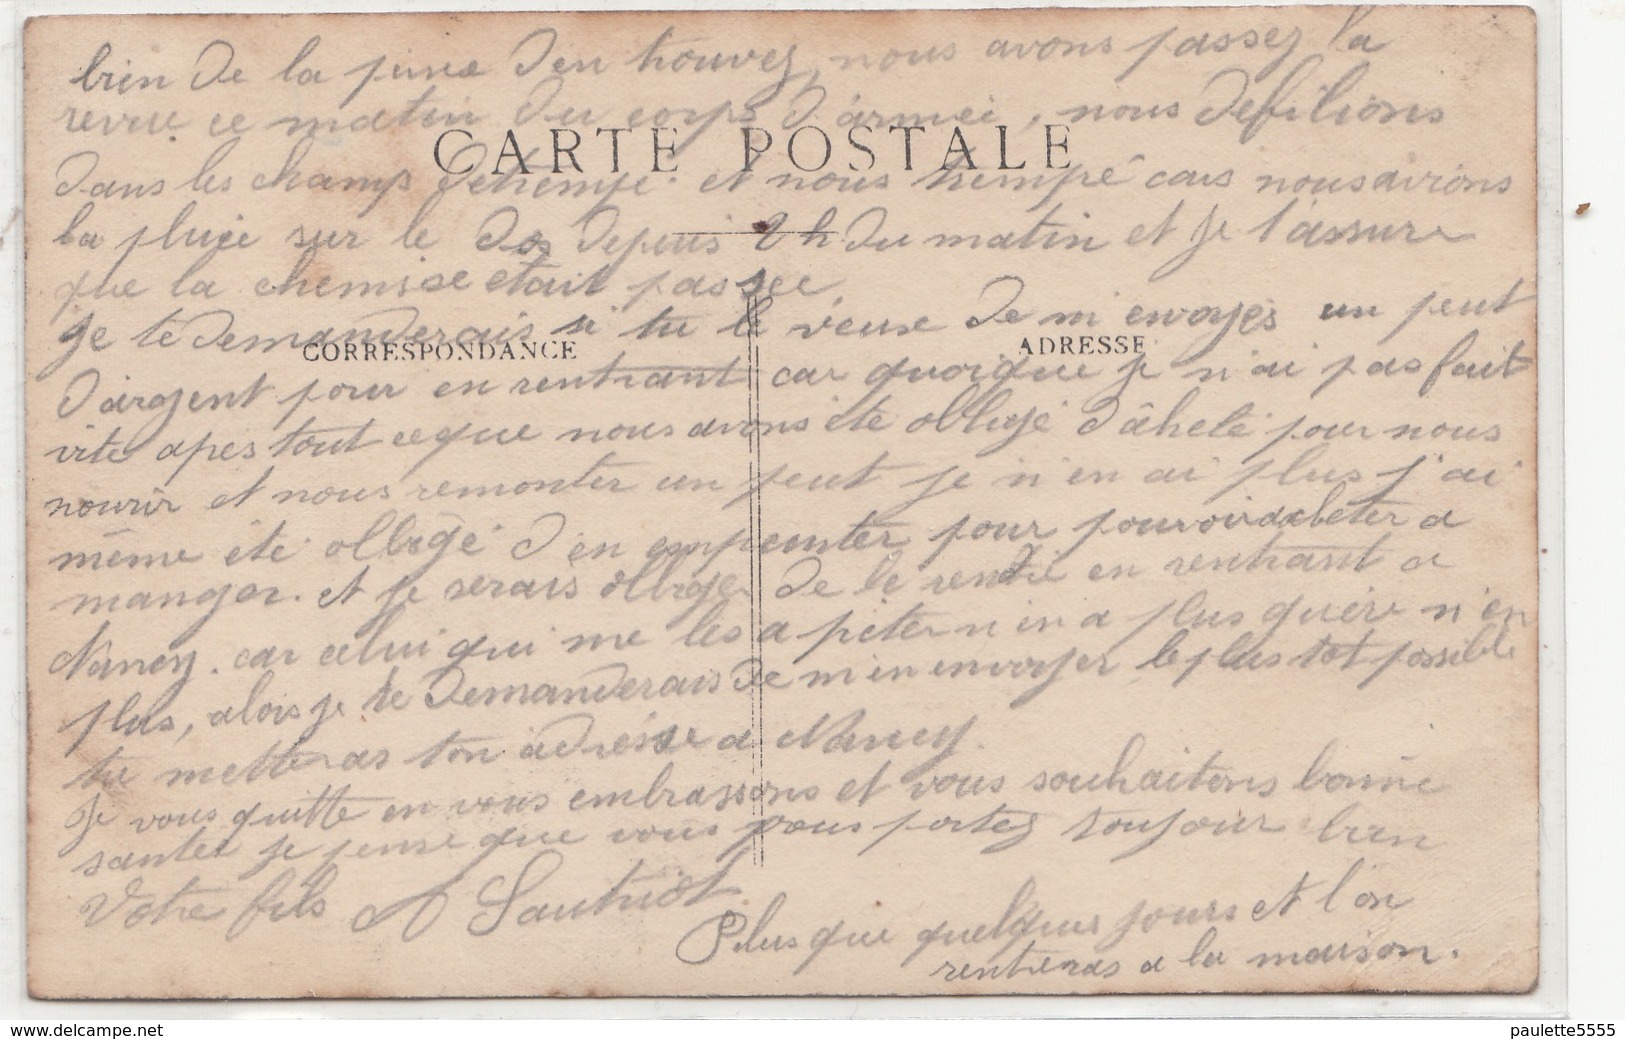 bien de la peine d'en trouvez, nous avons passez la
revue ce matin du corps d'armei, nous defilions
CARTE POSTALE
dans les champs detrempe. et nous trempé cars nous avions
la pluie sur le dos depuis 2 h du matin et je t'assure
que la chemise était passee,
je te demanderais si tu le veuse de m'envoyes un peut
CORRESPONDANCE
ADRESSE
d'argent pour en rentrant car quoique je n'ai pas fait
vite apes tout ce que nous avons été obligé d'âheté pour nous
nourir et nous remonter un peut je n'en ai plus j'ai
même été obligé d'en emprunter pour pouvoir acheter a
manger. et je serais obliger de le rendre en rentrant a
Nancy. car celui qui me les a prèter n'en a plus guère n'en
plus, alors je te demanderais de m'en envoyer le plus tot possible
tu metteras ton adrésse a Nancy.
Je vous quitte en vous embrassons et vous souhaitons bonne
santer je pense que vous vous portez toujour bien
Votre fils A Sautriot
Plus que quelques jours et l'on
rentreras a la maison.
paulette5555
www.delcampe.net